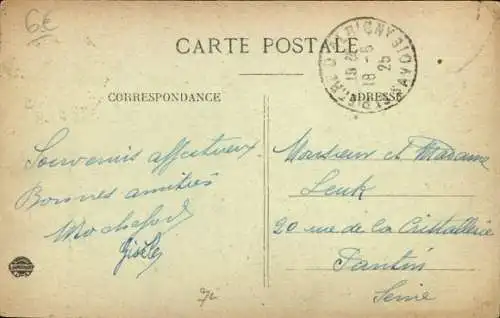 6€
CARTE POSTALE
CORRESPONDANCE
ADRESSE
18 -5
25
Souvenirs affectueux
Bonnes amitiés
Rochefort
Gisèle
Monsieur et Madame
Leuk
20 rue de la Cristallerie
Pantin
Seine